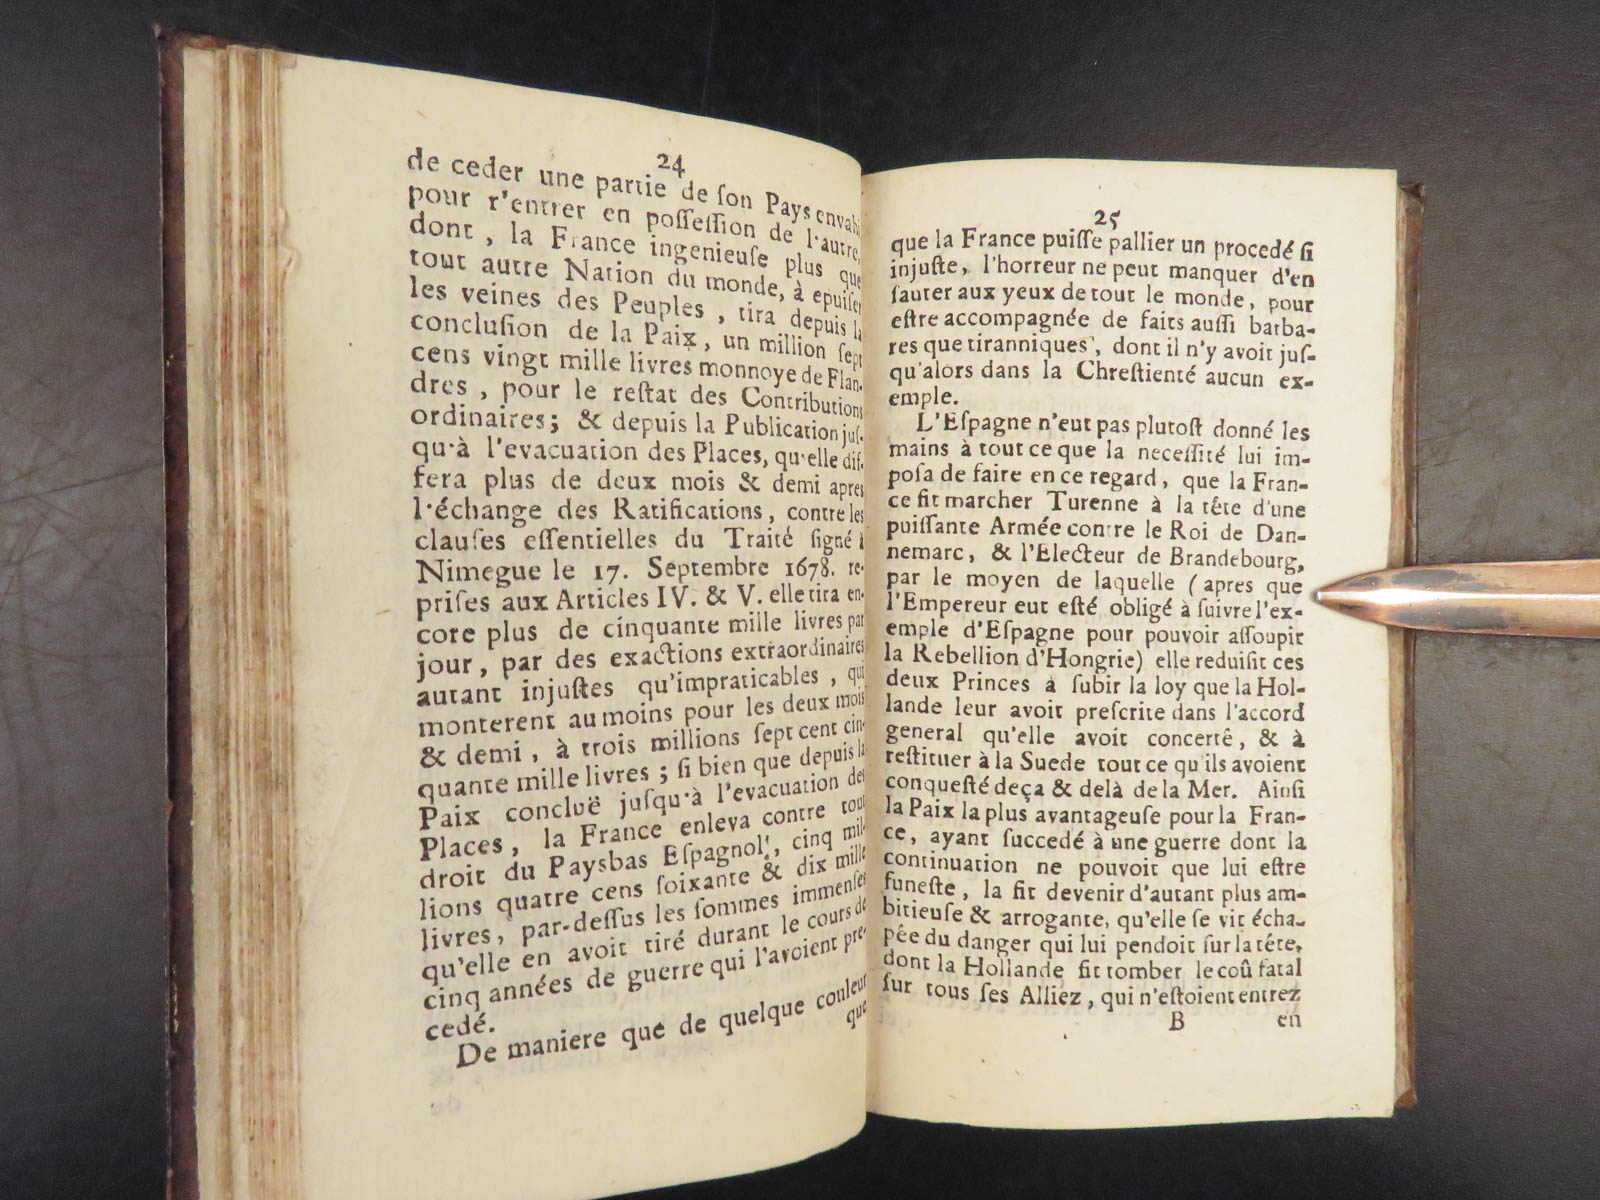 24
de ceder une partie de ſon Pays envahi
pour r'entrer en poſſeſſion de l'autre,
dont, la France ingenieuſe plus que
tout autre Nation du monde, à epuiſer
les veines des Peuples, tira depuis la
concluſion de la Paix, un million ſept
cens vingt mille livres monnoye de Flan-
dres, pour le reſtat des Contributions
ordinaires; & depuis la Publication juſ-
qu'à l'evacuation des Places, qu'elle dif-
fera plus de deux mois & demi apres
l'échange des Ratifications, contre les
clauſes eſſentielles du Traité ſigné à
Nimegue le 17. Septembre 1678. re-
priſes aux Articles IV. & V. elle tira en-
core plus de cinquante mille livres par
jour, par des exactions extraordinaires
autant injuſtes qu'impraticables, qui
monterent au moins pour les deux mois
& demi, à trois millions ſept cent cin-
quante mille livres; ſi bien que depuis la
Paix concluë juſqu'à l'evacuation des
Places, la France enleva contre tout
droit du Paysbas Eſpagnol, cinq mil-
lions quatre cens ſoixante & dix mille
livres, par-deſſus les ſommes immenſes
qu'elle en avoit tiré durant le cours de
cinq années de guerre qui l'avoient pre-
cedé.
De maniere que de quelque couleur
que
25
que la France puiſſe pallier un procedé ſi
injuſte, l'horreur ne peut manquer d'en
ſauter aux yeux de tout le monde, pour
eſtre accompagnée de faits auſſi barba-
res que tiranniques, dont il n'y avoit juſ-
qu'alors dans la Chreſtienté aucun ex-
emple.
L'Eſpagne n'eut pas plutoſt donné les
mains à tout ce que la neceſſité lui im-
poſa de faire en ce regard, que la Fran-
ce fit marcher Turenne à la téte d'une
puiſſante Armée contre le Roi de Dan-
nemarc, & l'Electeur de Brandebourg,
par le moyen de laquelle (apres que
l'Empereur eut eſté obligé à ſuivre l'ex-
emple d'Eſpagne pour pouvoir aſſoupir
la Rebellion d'Hongrie) elle reduiſit ces
deux Princes à ſubir la loy que la Hol-
lande leur avoit preſcrite dans l'accord
general qu'elle avoit concertê, & à
reſtituer à la Suede tout ce qu'ils avoient
conqueſté deça & delà de la Mer. Ainſi
la Paix la plus avantageuſe pour la Fran-
ce, ayant ſuccedé à une guerre dont la
continuation ne pouvoit que lui eſtre
funeſte, la fit devenir d'autant plus am-
bitieuſe & arrogante, qu'elle ſe vit écha-
pée du danger qui lui pendoit ſur la téte,
dont la Hollande fit tomber le coû fatal
ſur tous ſes Alliez, qui n'eſtoient entrez
B en